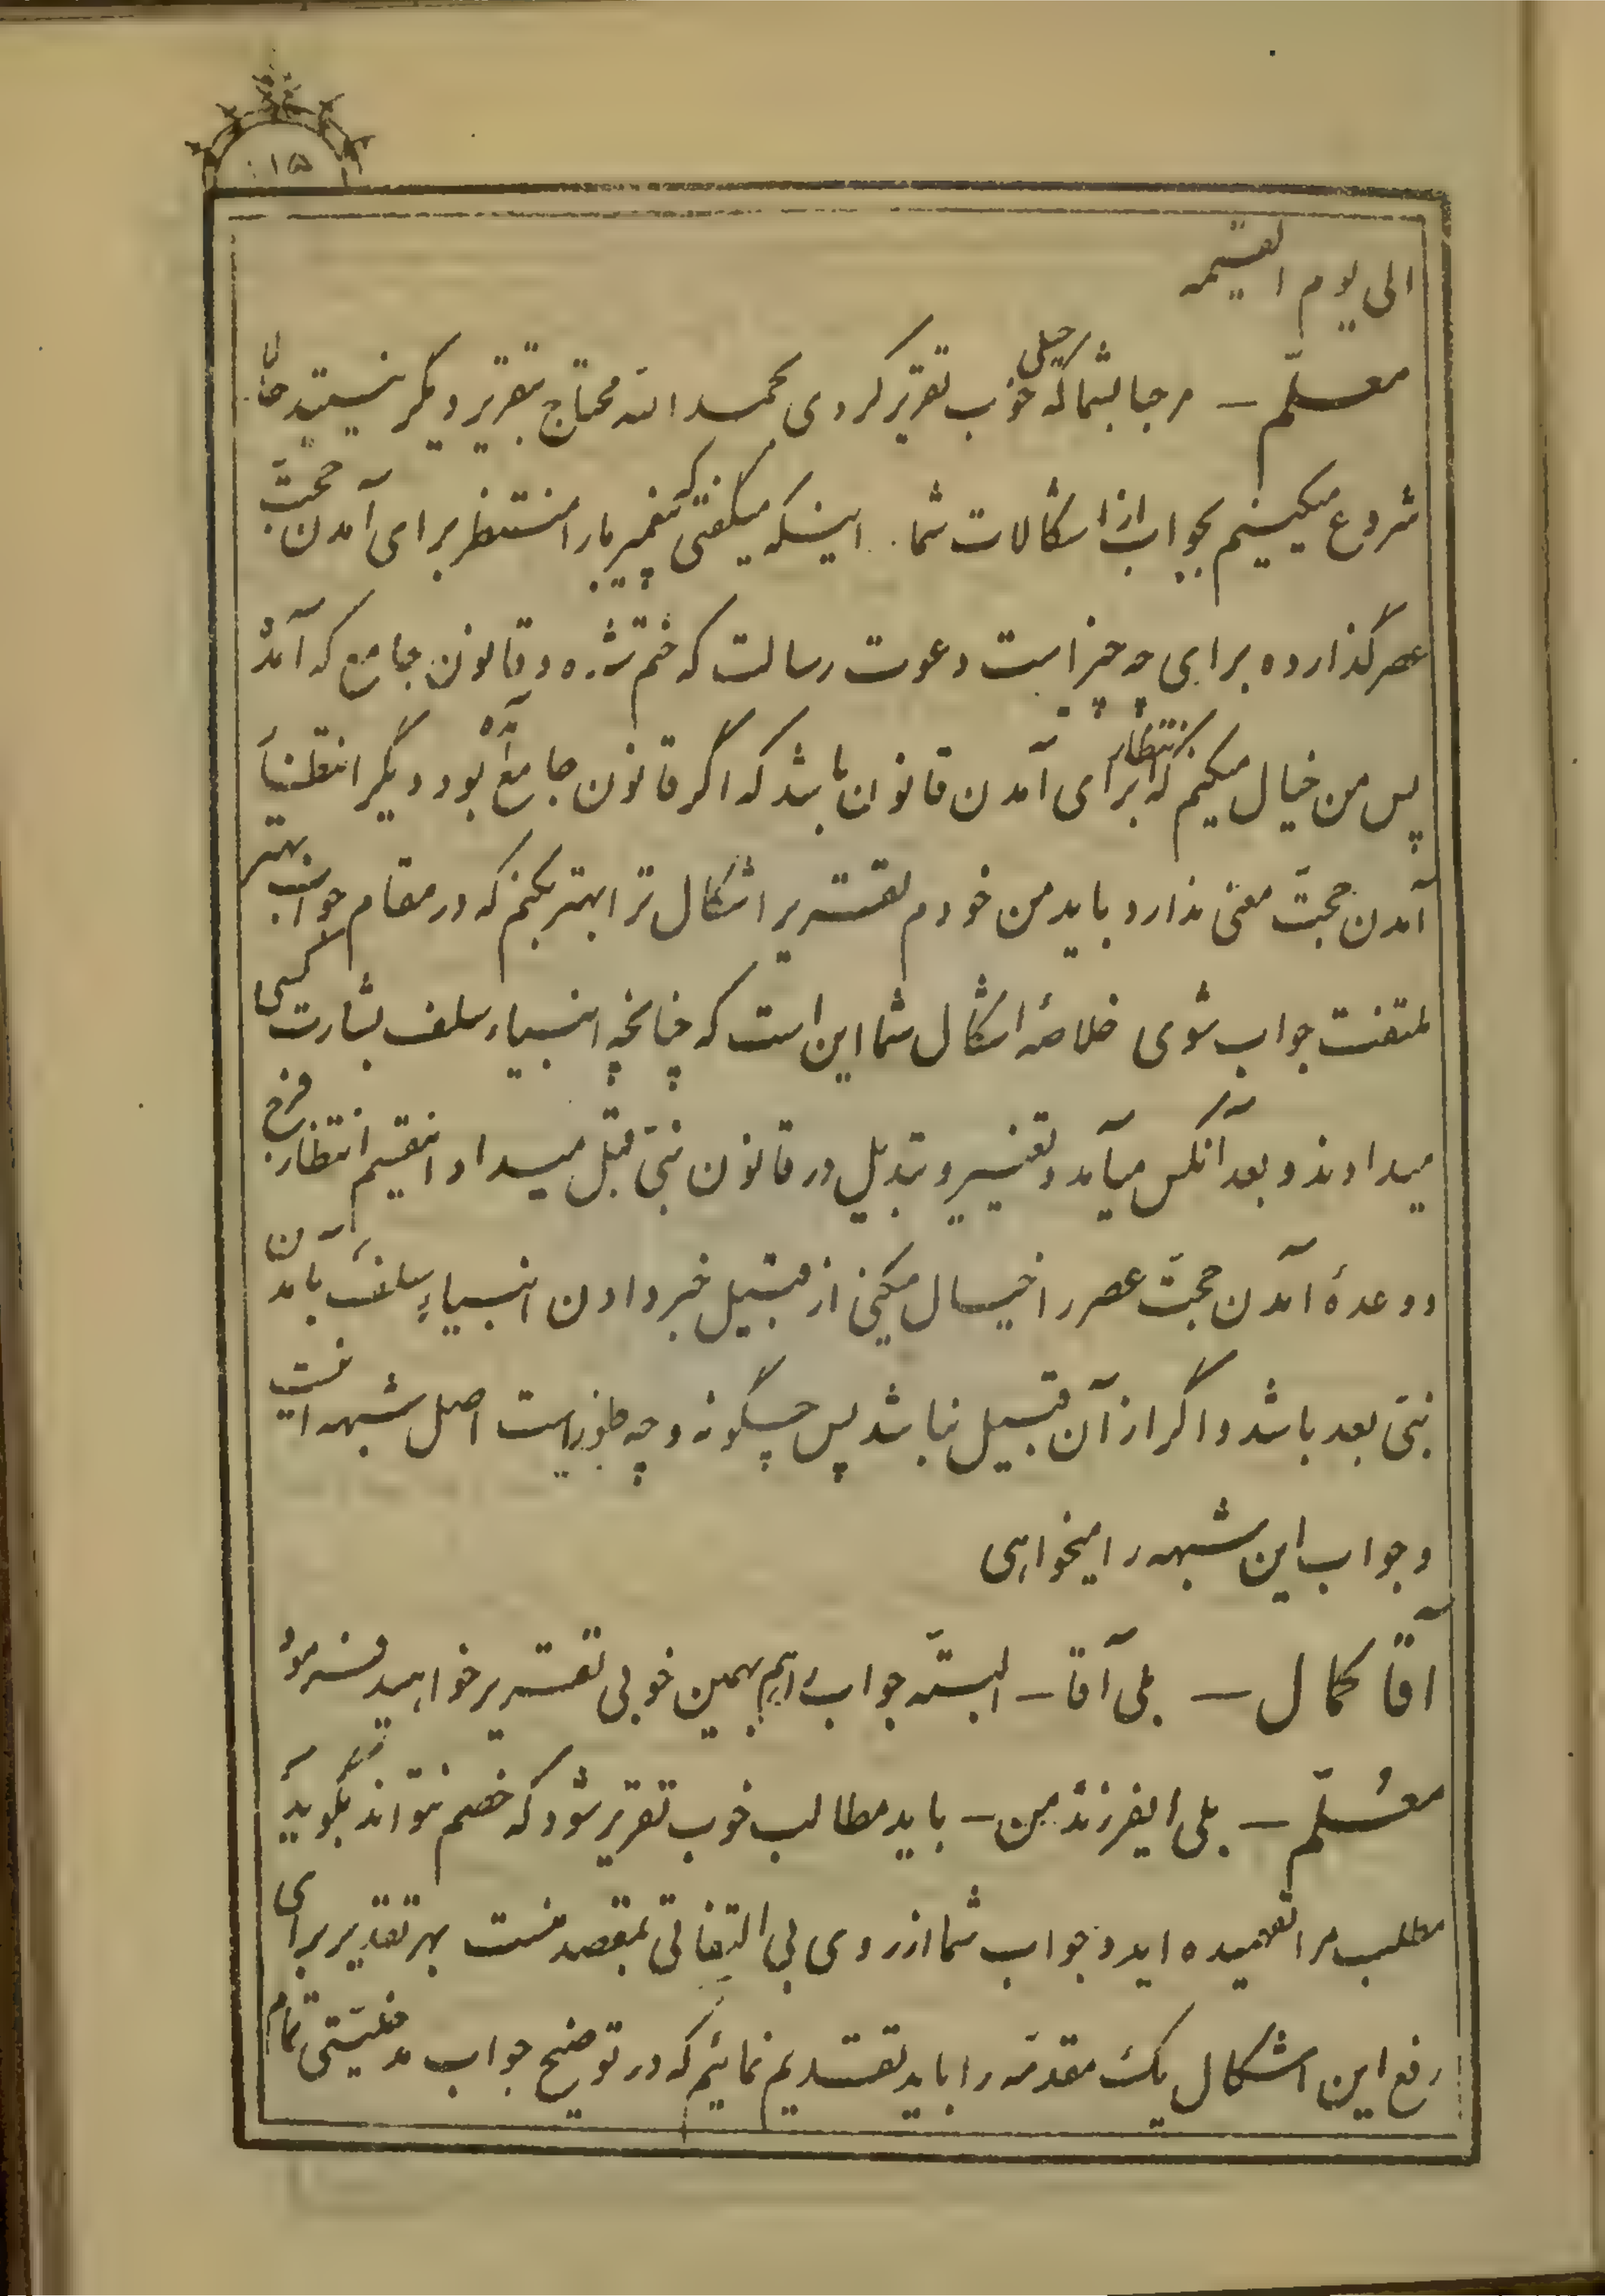 ١٥
الی یوم القیمه
معلّم — مرحبا بشما که خیلی خوب تقریر کردی بحمد الله محتاج بتقریر دیگر نیستید حالا
شروع میکنیم بجواب از اشکالات شما. اینکه میگفتی که پیغمبر ما را منتظر برای آمدن حجّت
عصر گذارده برای چه چیز است دعوت رسالت که ختم شده و قانون جامع که آمد
پس من خیال میکنم که انتظار برای آمدن قانون باشد که اگر قانون جامع آمده بود دیگر انتظار
آمدن حجّت معنی ندارد باید من خودم تقریر اشکال ترا بهتر بکنم که در مقام جواب بهتر
ملتفت جواب شوی خلاصهٔ اشکال شما این است که چنانچه انبیاء سلف بشارت کسی
میدادند و بعد آنکس میآمد و تغییر و تبدیل در قانون نبیّ قبل میداد انتظار فرج
و وعدهٔ آمدن حجّت عصر را خیال میکنی از قبیل خبر دادن انبیاءِ سلف بآمدن
نبیّ بعد باشد و اگر از آن قبیل نباشد پس چگونه و چه طور است اصل شبهه اینست
و جواب این شبهه را میخواهی
آقا کمال — بلی آقا — البتّه جواب را هم بهمین خوبی تقریر خواهید فرمود
معُلّم — بلی ایفرزند من — باید مطالب خوب تقریر شود که خصم نتواند بگوید
مطلب مرا نفهمیده اید و جواب شما از روی بی التفاتی بمقصد منست بهر تقدیر برای
رفع این اشکال یک مقدّمه را باید تقدیم نمائیم که در توضیح جواب مدخلیّتی تمام